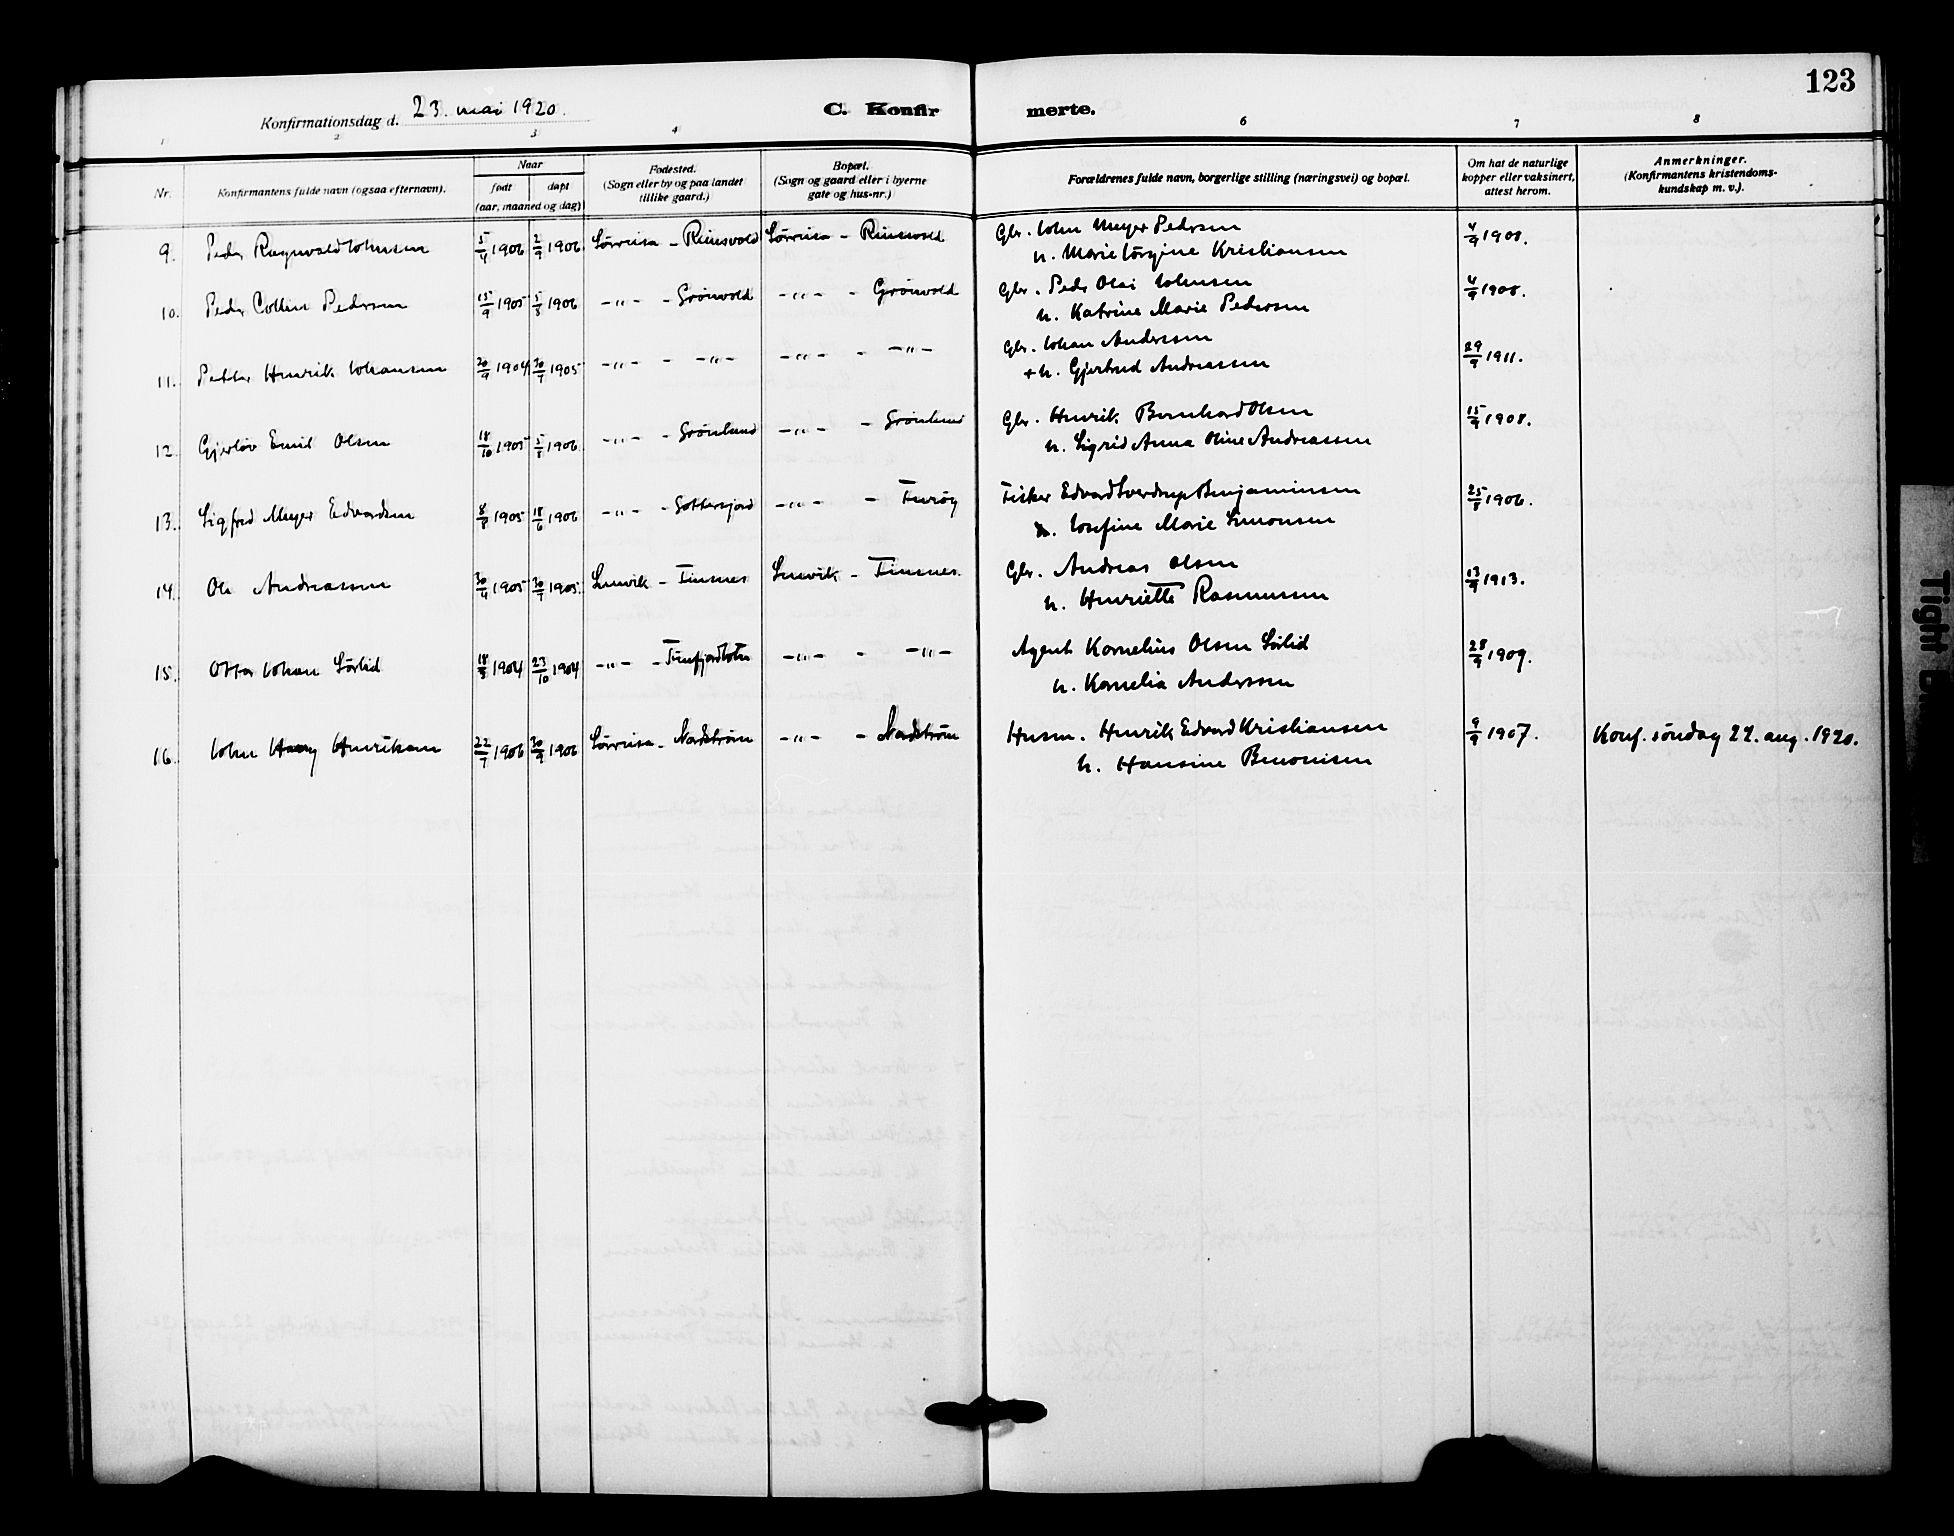 123
Konfirmationsdag d. 23. mai 1920.
C. Konfir merte.
1 2 3 4 6 7 8
Nr. Konfirmantens fulde navn (ogsaa efternavn). Naar født døpt (aar, maaned og dag) Fødested. (Sogn eller by og paa landet tillike gaard.) Bopæl. (Sogn og gaard eller i byerne gate og hus-nr.) Forældrenes fulde navn, borgerlige stilling (næringsvei) og bopæl. Om hat de naturlige kopper eller vaksinert, attest herom. Anmerkninger. (Konfirmantens kristendomskundskap m. v.).
9. Peder Ragnvald Johnsen 5/4 1906 2/9 1906 Sørreisa - Reinsvold Sørreisa - Reinsvold Gbr. John Meyer Pedersen 4/9 1908.
h. Marie Jørgine Kristiansen
10. Peder Collin Pedersen 15/9 1905 5/8 1906 -"- - Grönvold -"- - Grönvold Gbr. Peder Olai Johnsen 4/9 1908.
h. Katrine Marie Pedersen
11. Petter Henrik Johansen 20/9 1904 30/7 1905 -"- - -"- -"- - -"- Gbr. Johan Anderssen 29/9 1911.
+ h. Gjertrud Andreassen
12. Gjerløv Emil Olsen 18/10 1905 5/8 1906 -"- - Grönlund -"- - Grönlund Gbr. Henrik Bernhard Olsen 15/9 1908.
h. Sigrid Anna Oline Andreassen
13. Sigfred Meyer Edvardsen 8/8 1905 18/6 1906 -"- - Gottesjord -"- - Furöy Fisker Edvard Sverdrup Benjaminsen 25/8 1906.
h. Josefine Marie Simonsen
14. Ole Andreassen 30/4 1905 30/7 1905. Lenvik - Finsnes Lenvik - Finsnes. Gbr. Andreas Olsen 13/9 1913.
h. Henriette Rasmussen
15. Ottar Johan Sörlid 18/8 1904 23/10 1904 -"- - Finfjordbotn -"- - -"- Agent Kornelius Olsen Sörlid 28/9 1909.
h. Kornelia Anderssen
16. John Harry Henriksen 22/7 1906 30/9 1906 Sørreisa - Nordström -"- - Nordström Husm. Henrik Edvard Kristiansen 9/9 1907. Konf. söndag 22. aug. 1920.
h. Hansine Benonisen
Tight